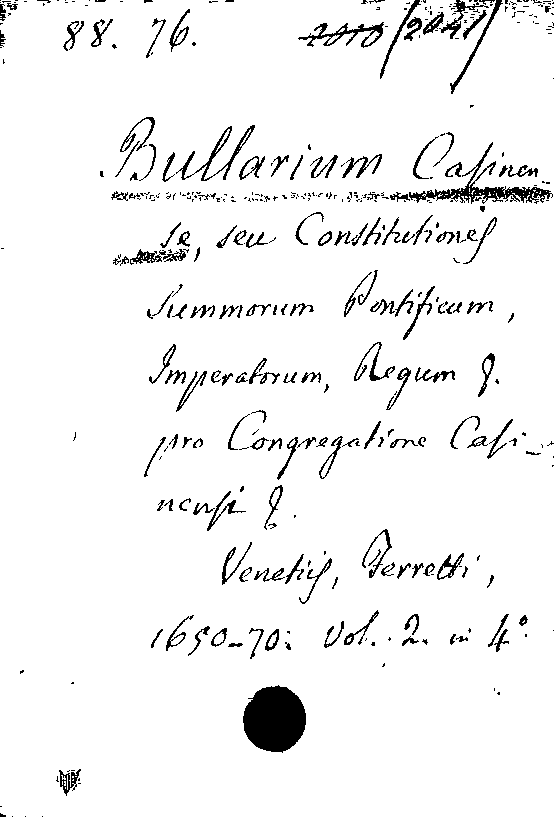 88. 76. 2010 /2041/
Bullarium Casinen-
se, seu Constitutiones
Summorum Pontificum,
Imperatorum, Regum &.
pro Congregatione Casi-
nensi &.
Venetiis, Ferretti,
1650-70. Vol. 2. in 4°.